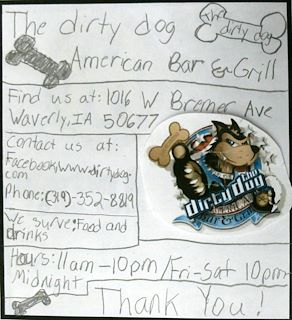 The dirty dog
The dirty dog
American Bar & Grill
Find us at: 1016 W Bremer Ave
Waverly, IA 50677
Contact us at:
Facebook/www.dirtydog.
com
Phone: (319)-352-8819
We surve: Food and
drinks
The
Dirty Dog
American
Bar & Grill
Hours: 11am-10pm/Fri-Sat 10pm-
Midnight
Thank You!